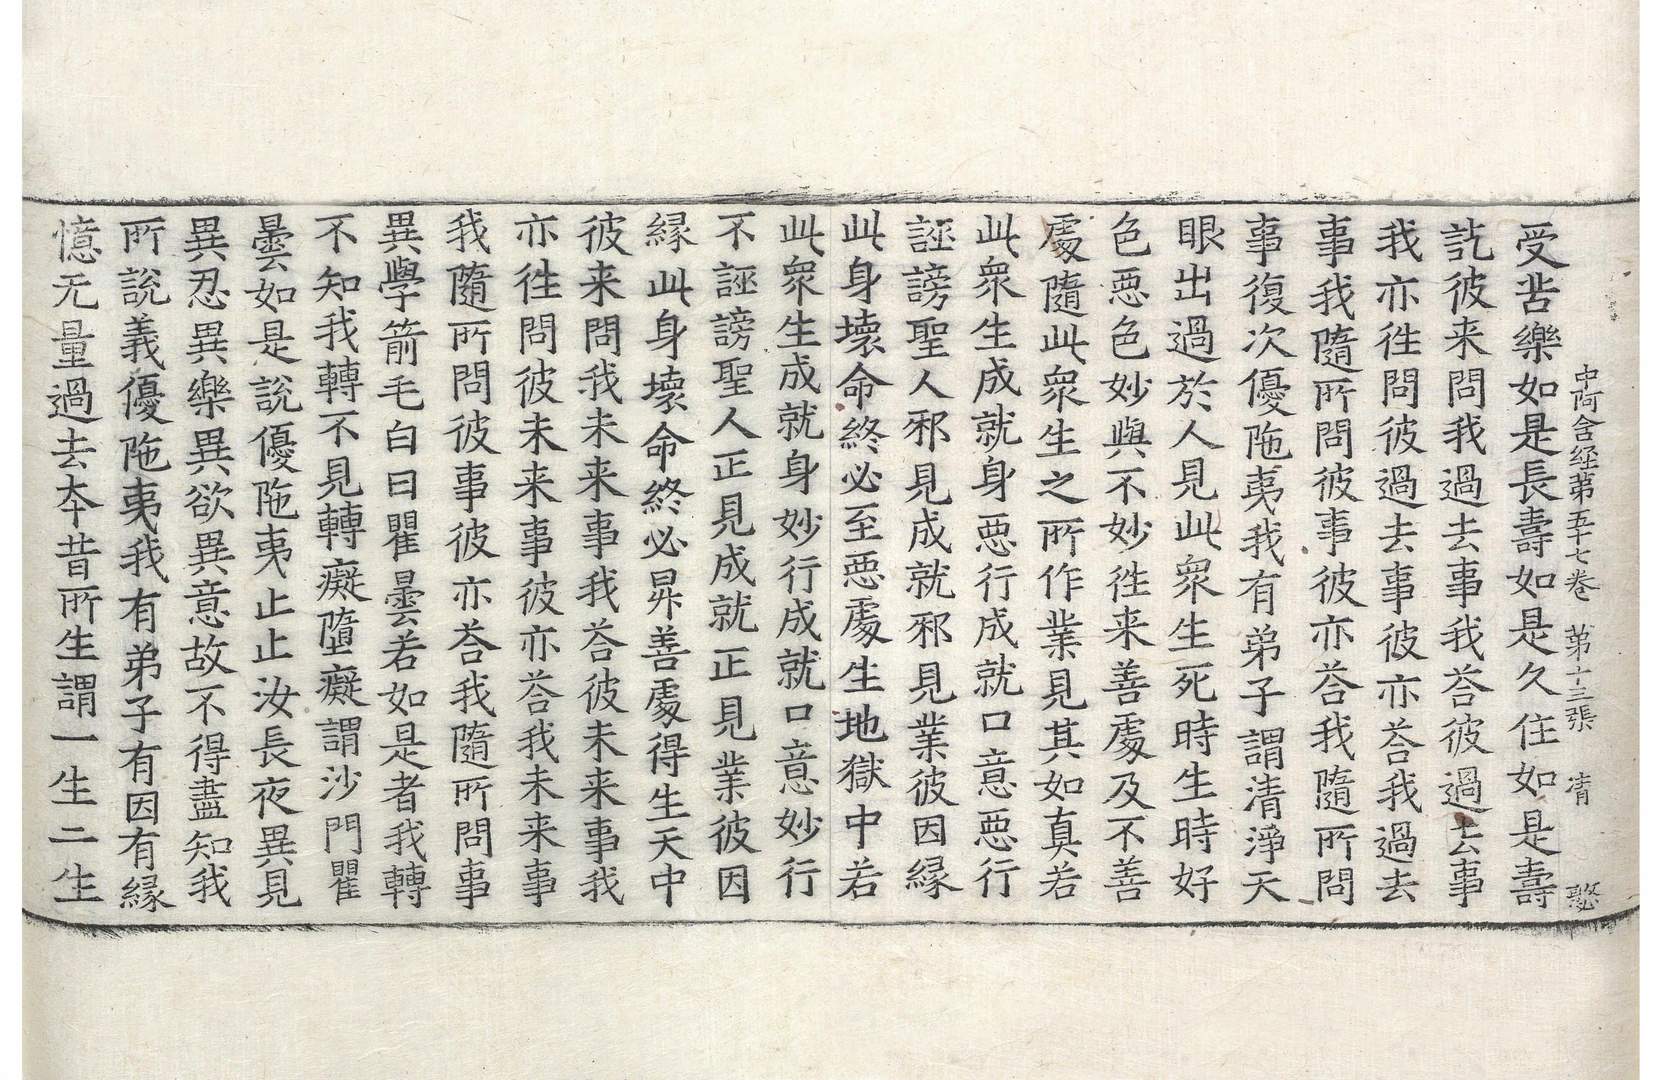 中阿含経第五十七卷 第十三張 清 慜
受苦樂如是長壽如是久住如是壽
訖彼来問我過去事我荅彼過去事
我亦徃問彼過去事彼亦荅我過去
事我隨所問彼事彼亦荅我隨所問
事復次優陁夷我有弟子謂清淨天
眼出過於人見此衆生死時生時好
色惡色妙與不妙徃来善處及不善
處隨此衆生之所作業見其如真若
此衆生成就身惡行成就口意惡行
誣謗聖人邪見成就邪見業彼因緣
此身壞命終必至惡處生地獄中若
此衆生成就身妙行成就口意妙行
不誣謗聖人正見成就正見業彼因
緣此身壞命終必昇善處得生天中
彼来問我未来事我荅彼未来事我
亦徃問彼未来事彼亦荅我未来事
我隨所問彼事彼亦荅我隨所問事
異學箭毛白曰瞿曇若如是者我轉
不知我轉不見轉癡墮癡謂沙門瞿
曇如是說優陁夷止止汝長夜異見
異忍異樂異欲異意故不得盡知我
所說義優陁夷我有弟子有因有緣
憶无量過去夲昔所生謂一生二生